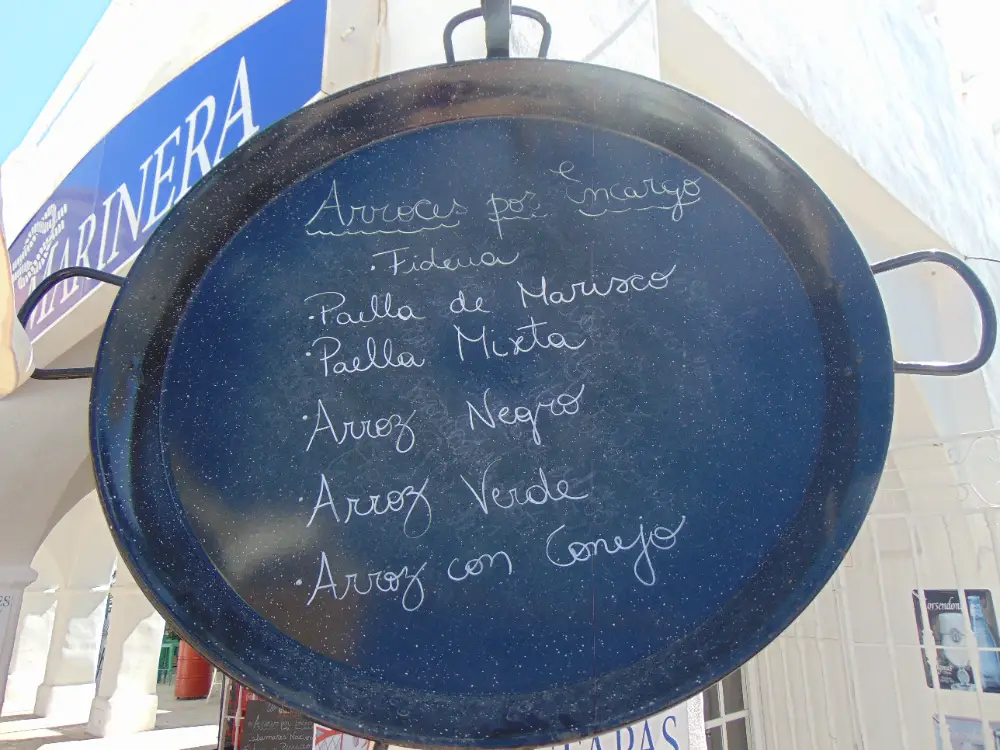 MARINERA
Arroces por Encargo
·Fideua
·Paella de Marisco
·Paella Mixta
·Arroz Negro
·Arroz Verde
·Arroz con Conejo